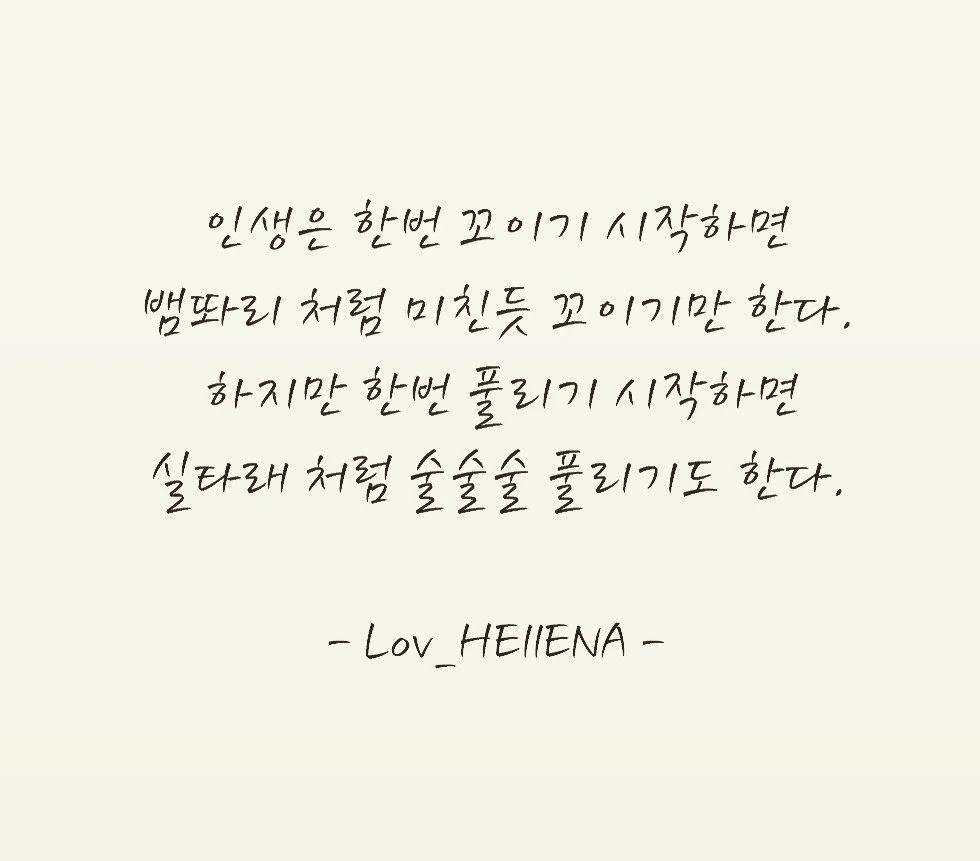 인생은 한번 꼬이기 시작하면
뱀똬리 처럼 미친듯 꼬이기만 한다.
하지만 한번 풀리기 시작하면
실타래 처럼 술술술 풀리기도 한다.
- Lov_HEllENA -